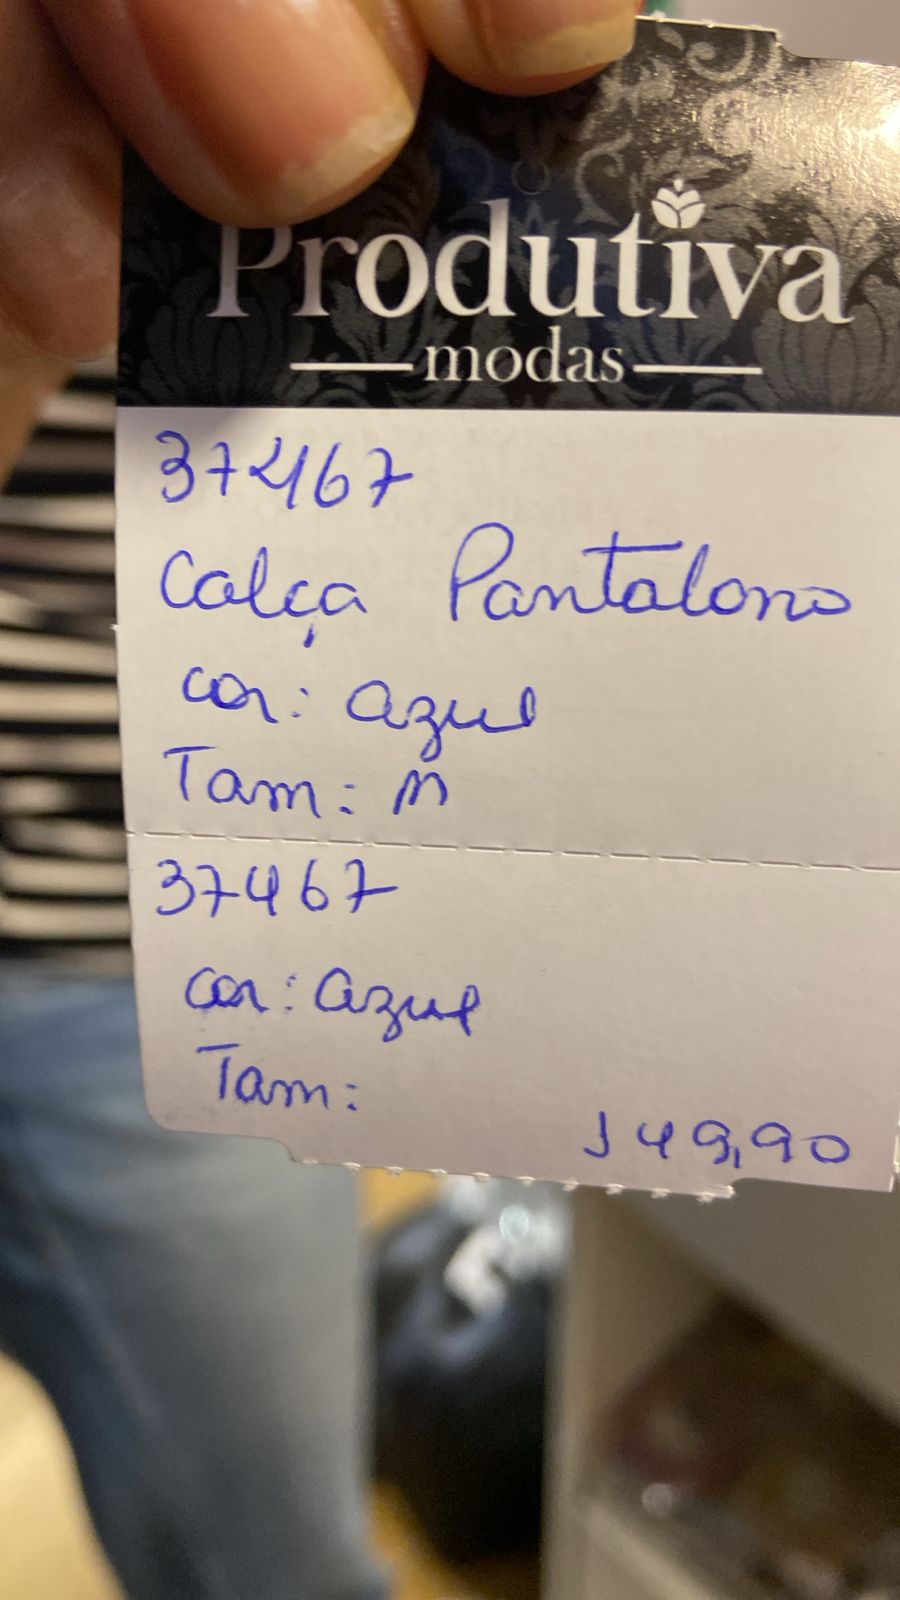 Produtiva
modas
37467
Calça Pantalona
cor: azul
Tam: M
37467
cor: azul
Tam:
149,90